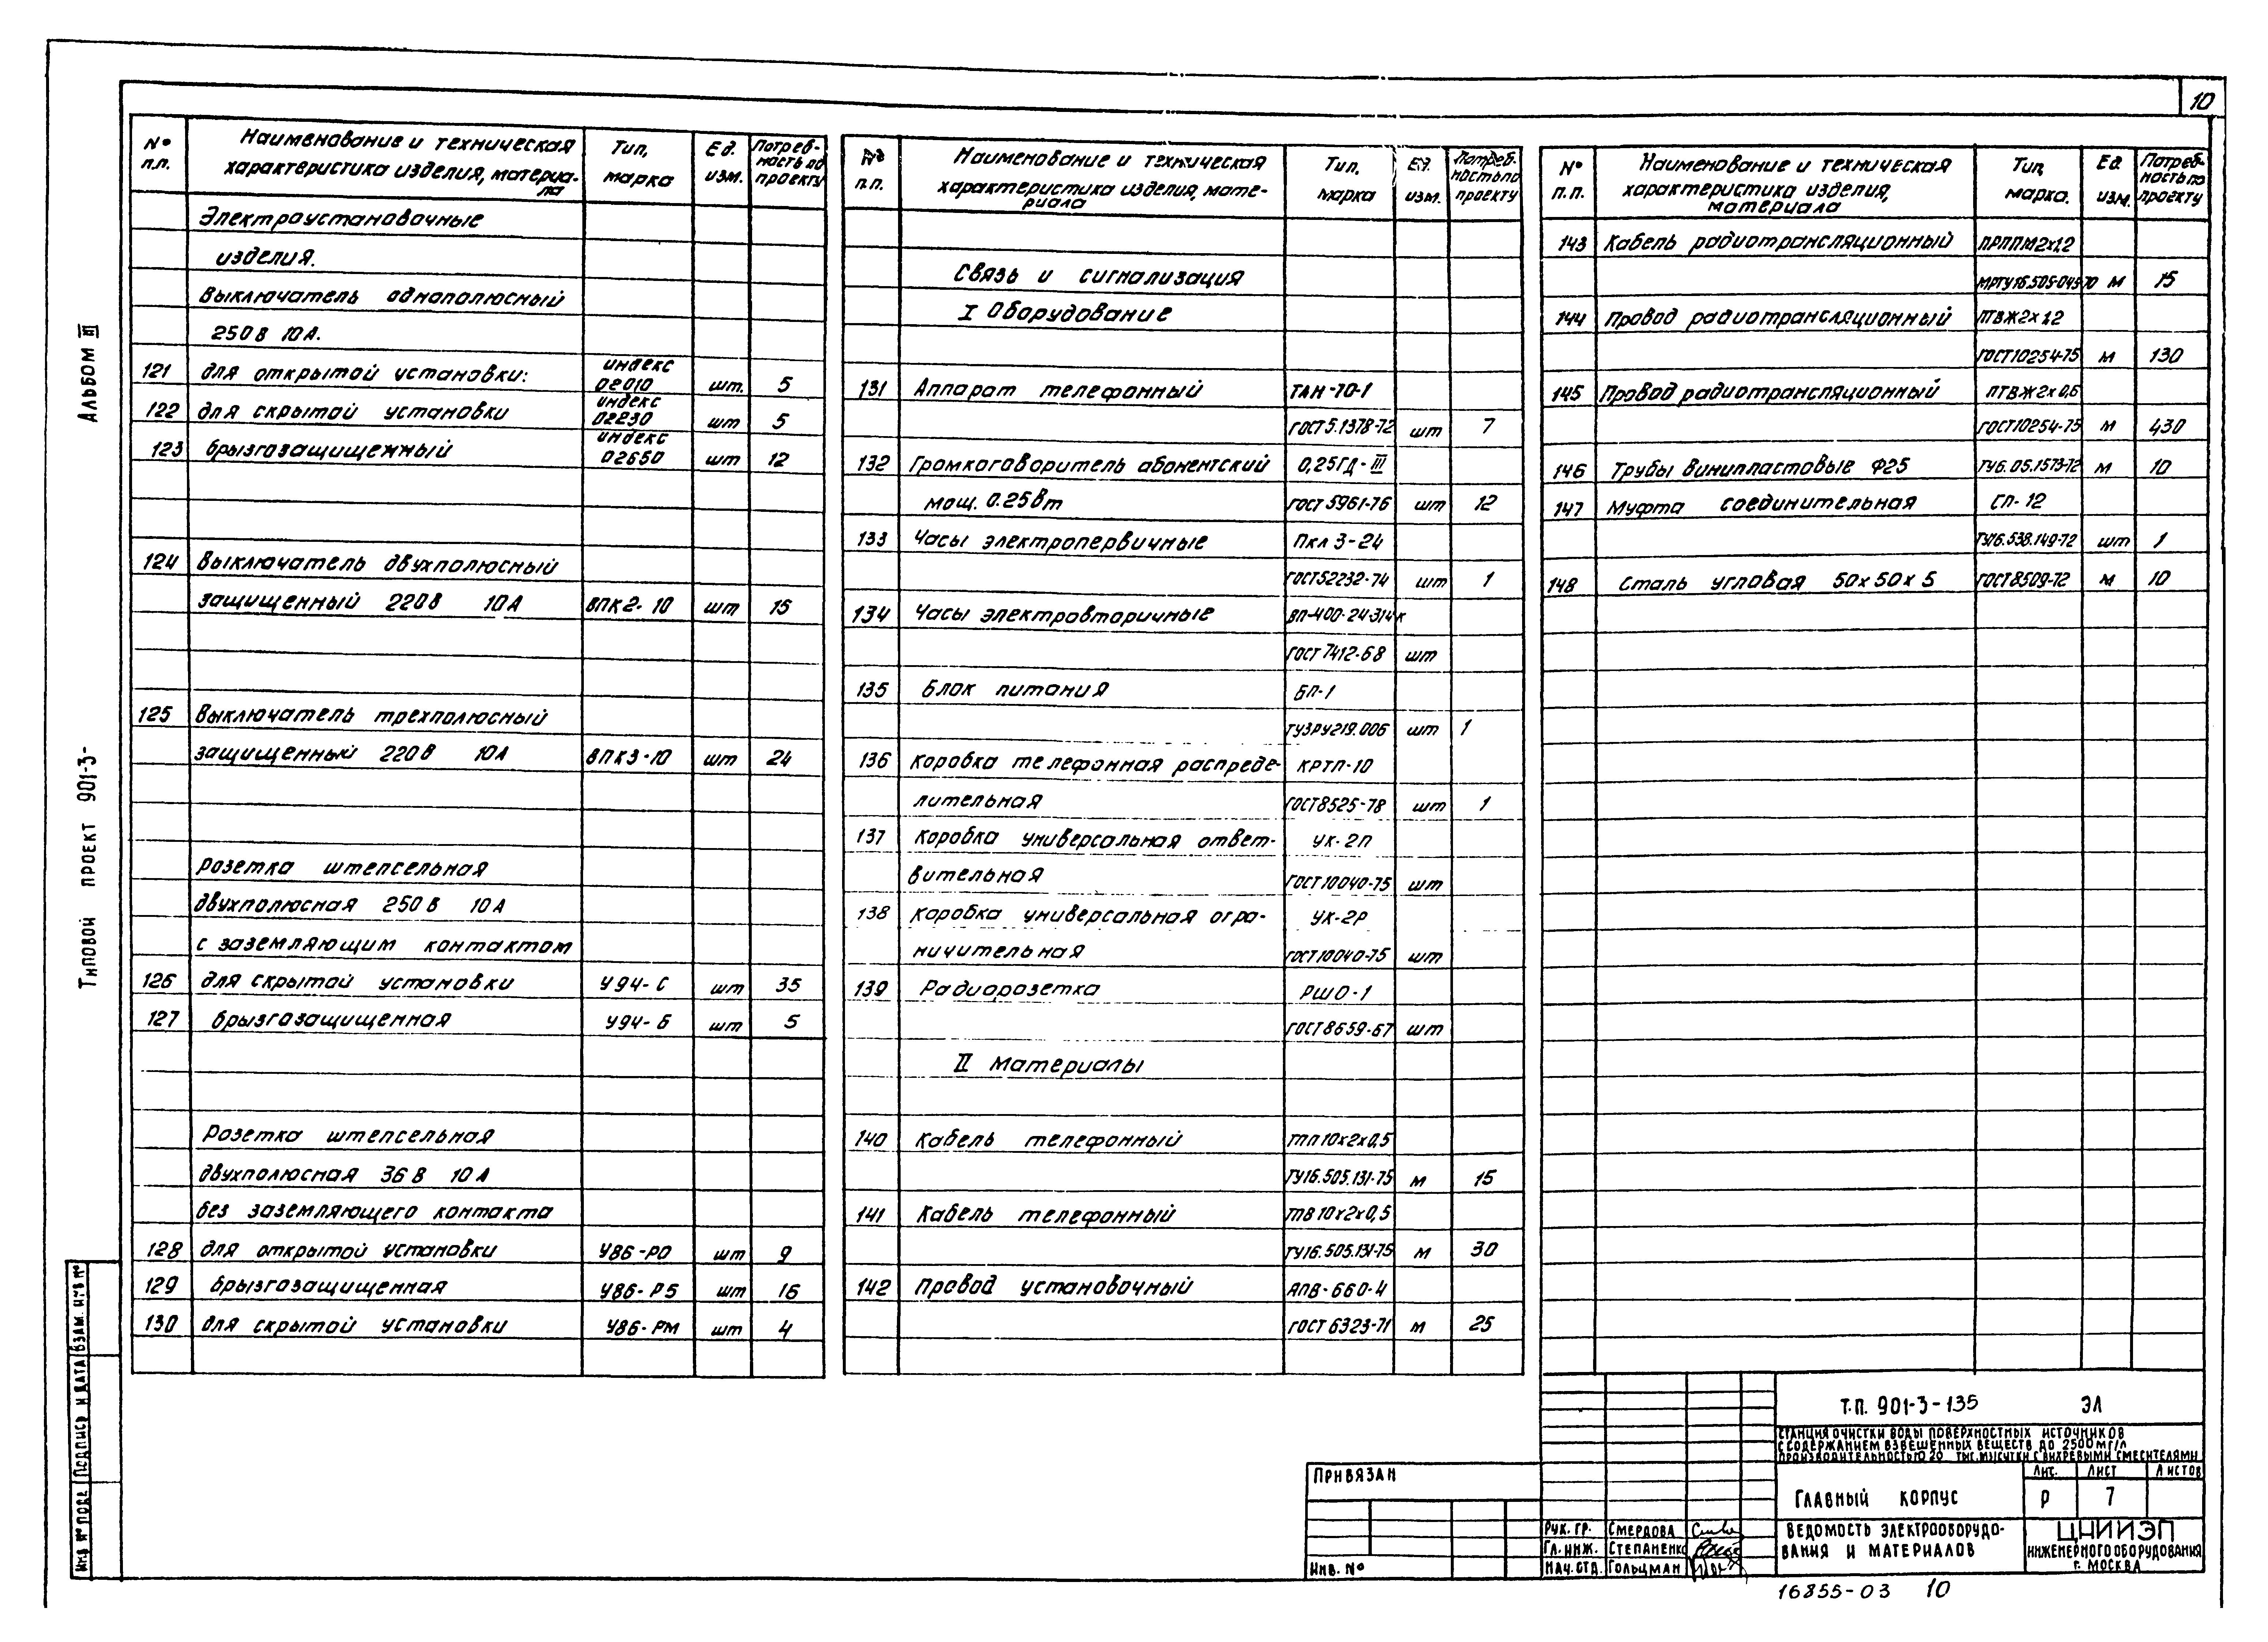 10
Альбом III
Типовой проект 901-3-
№ п.п. | Наименование и техническая характеристика изделия, материала | Тип, марка | Ед. изм. | Потребность по проекту
Электроустановочные
изделия.
Выключатель однополюсный
250В 10А.
121 | для открытой установки: | индекс 02010 | шт. | 5
122 | для скрытой установки | индекс 02230 | шт | 5
123 | брызгозащищенный | индекс 02650 | шт | 12
124 | Выключатель двухполюсный
защищенный 220В 10А | ВПК2-10 | шт | 15
125 | Выключатель трехполюсный
защищенный 220В 10А | ВПК3-10 | шт | 24
розетка штепсельная
двухполюсная 250В 10А
с заземляющим контактом
126 | для скрытой установки | У94-С | шт | 35
127 | брызгозащищенная | У94-Б | шт | 5
Розетка штепсельная
двухполюсная 36В 10А
без заземляющего контакта
128 | для открытой установки | У86-РО | шт | 9
129 | брызгозащищенная | У86-РБ | шт | 16
130 | для скрытой установки | У86-РМ | шт | 4
№ п.п. | Наименование и техническая характеристика изделия, материала | Тип, марка | Ед. изм. | Потребность по проекту
Связь и сигнализация
I Оборудование
131 | Аппарат телефонный | ТАН-70-1
ГОСТ5.1378-72 | шт | 7
132 | Громкоговоритель абонентский | 0,25ГД-III
мощ. 0.25Вт | ГОСТ 5961-76 | шт | 12
133 | Часы электропервичные | Пкл 3-24
ГОСТ52232-74 | шт | 1
134 | Часы электровторичные | ВП-400-24-314к
ГОСТ 7412-68 | шт
135 | Блок питания | БП-1
ТУ3РУ219.006 | шт | 1
136 | Коробка телефонная распреде- | КРТП-10
лительная | ГОСТ8525-78 | шт | 1
137 | Коробка универсальная ответ- | УК-2П
вительная | ГОСТ10040-75 | шт
138 | Коробка универсальная огра- | УК-2Р
ничительная | ГОСТ10040-75 | шт
139 | Радиорозетка | РШО-1
ГОСТ8659-67 | шт
II Материалы
140 | Кабель телефонный | ТПП10х2х0,5
ТУ16.505.131-75 | м | 15
141 | Кабель телефонный | ТПВ10х2х0,5
ТУ16.505.131-75 | м | 30
142 | Провод установочный | АПВ-660-4
ГОСТ 6323-71 | м | 25
№ п.п. | Наименование и техническая характеристика изделия, материала | Тип, марка. | Ед. изм. | Потребность по проекту
143 | Кабель радиотрансляционный | ПРППМ2х1,2
МРТУ16.505-049-70 | м | 15
144 | Провод радиотрансляционный | ПТВЖ2х1,2
ГОСТ10254-75 | м | 130
145 | Провод радиотрансляционный | ПТВЖ2х0,6
ГОСТ10254-75 | м | 430
146 | Трубы винипластовые Ф25 | ТУ6.05.1573-72 | м | 10
147 | Муфта соединительная | СП-12
ТУ16.538.149-72 | шт | 1
148 | Сталь угловая 50х50х5 | ГОСТ8509-72 | м | 10
Т.П. 901-3-135 ЭЛ
Станция очистки воды поверхностных источников
с содержанием взвешенных веществ до 2500мг/л
производительностью 20 тыс.м3/сутки с вихревыми смесителями
Лит. | Лист | Листов
Главный корпус | Р | 7
Ведомость электрооборудо-
вания и материалов
ЦНИИЭП
инженерного оборудования
г. Москва
Рук. гр. Смердова
Гл. инж. Степаненко
Нач. отд. Гольцман
Привязан
Инв. №
Инв № подл | Подпись и дата | Взам. инв №
16855-03 10